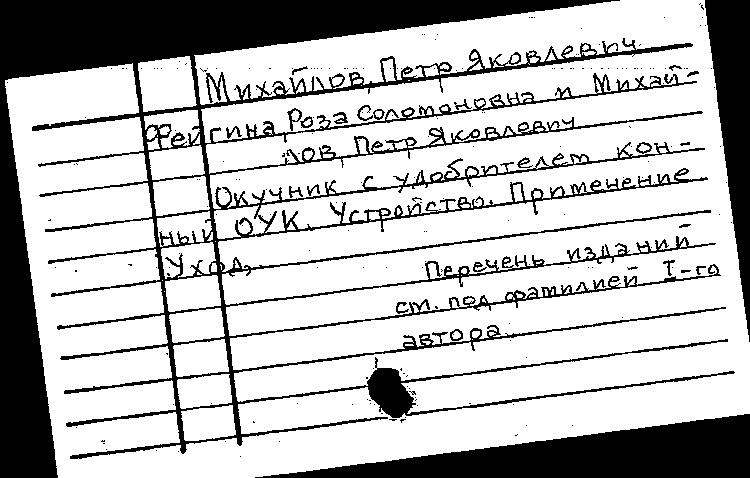 Михайлов, Петр Яковлевич
Фейгина, Роза Соломоновна и Михай-
лов, Петр Яковлевич
Окучник с удобрителем кон-
ный ОУК. Устройство. Применение
Уход,
Перечень изданий
см. под фамилией I-го
автора.